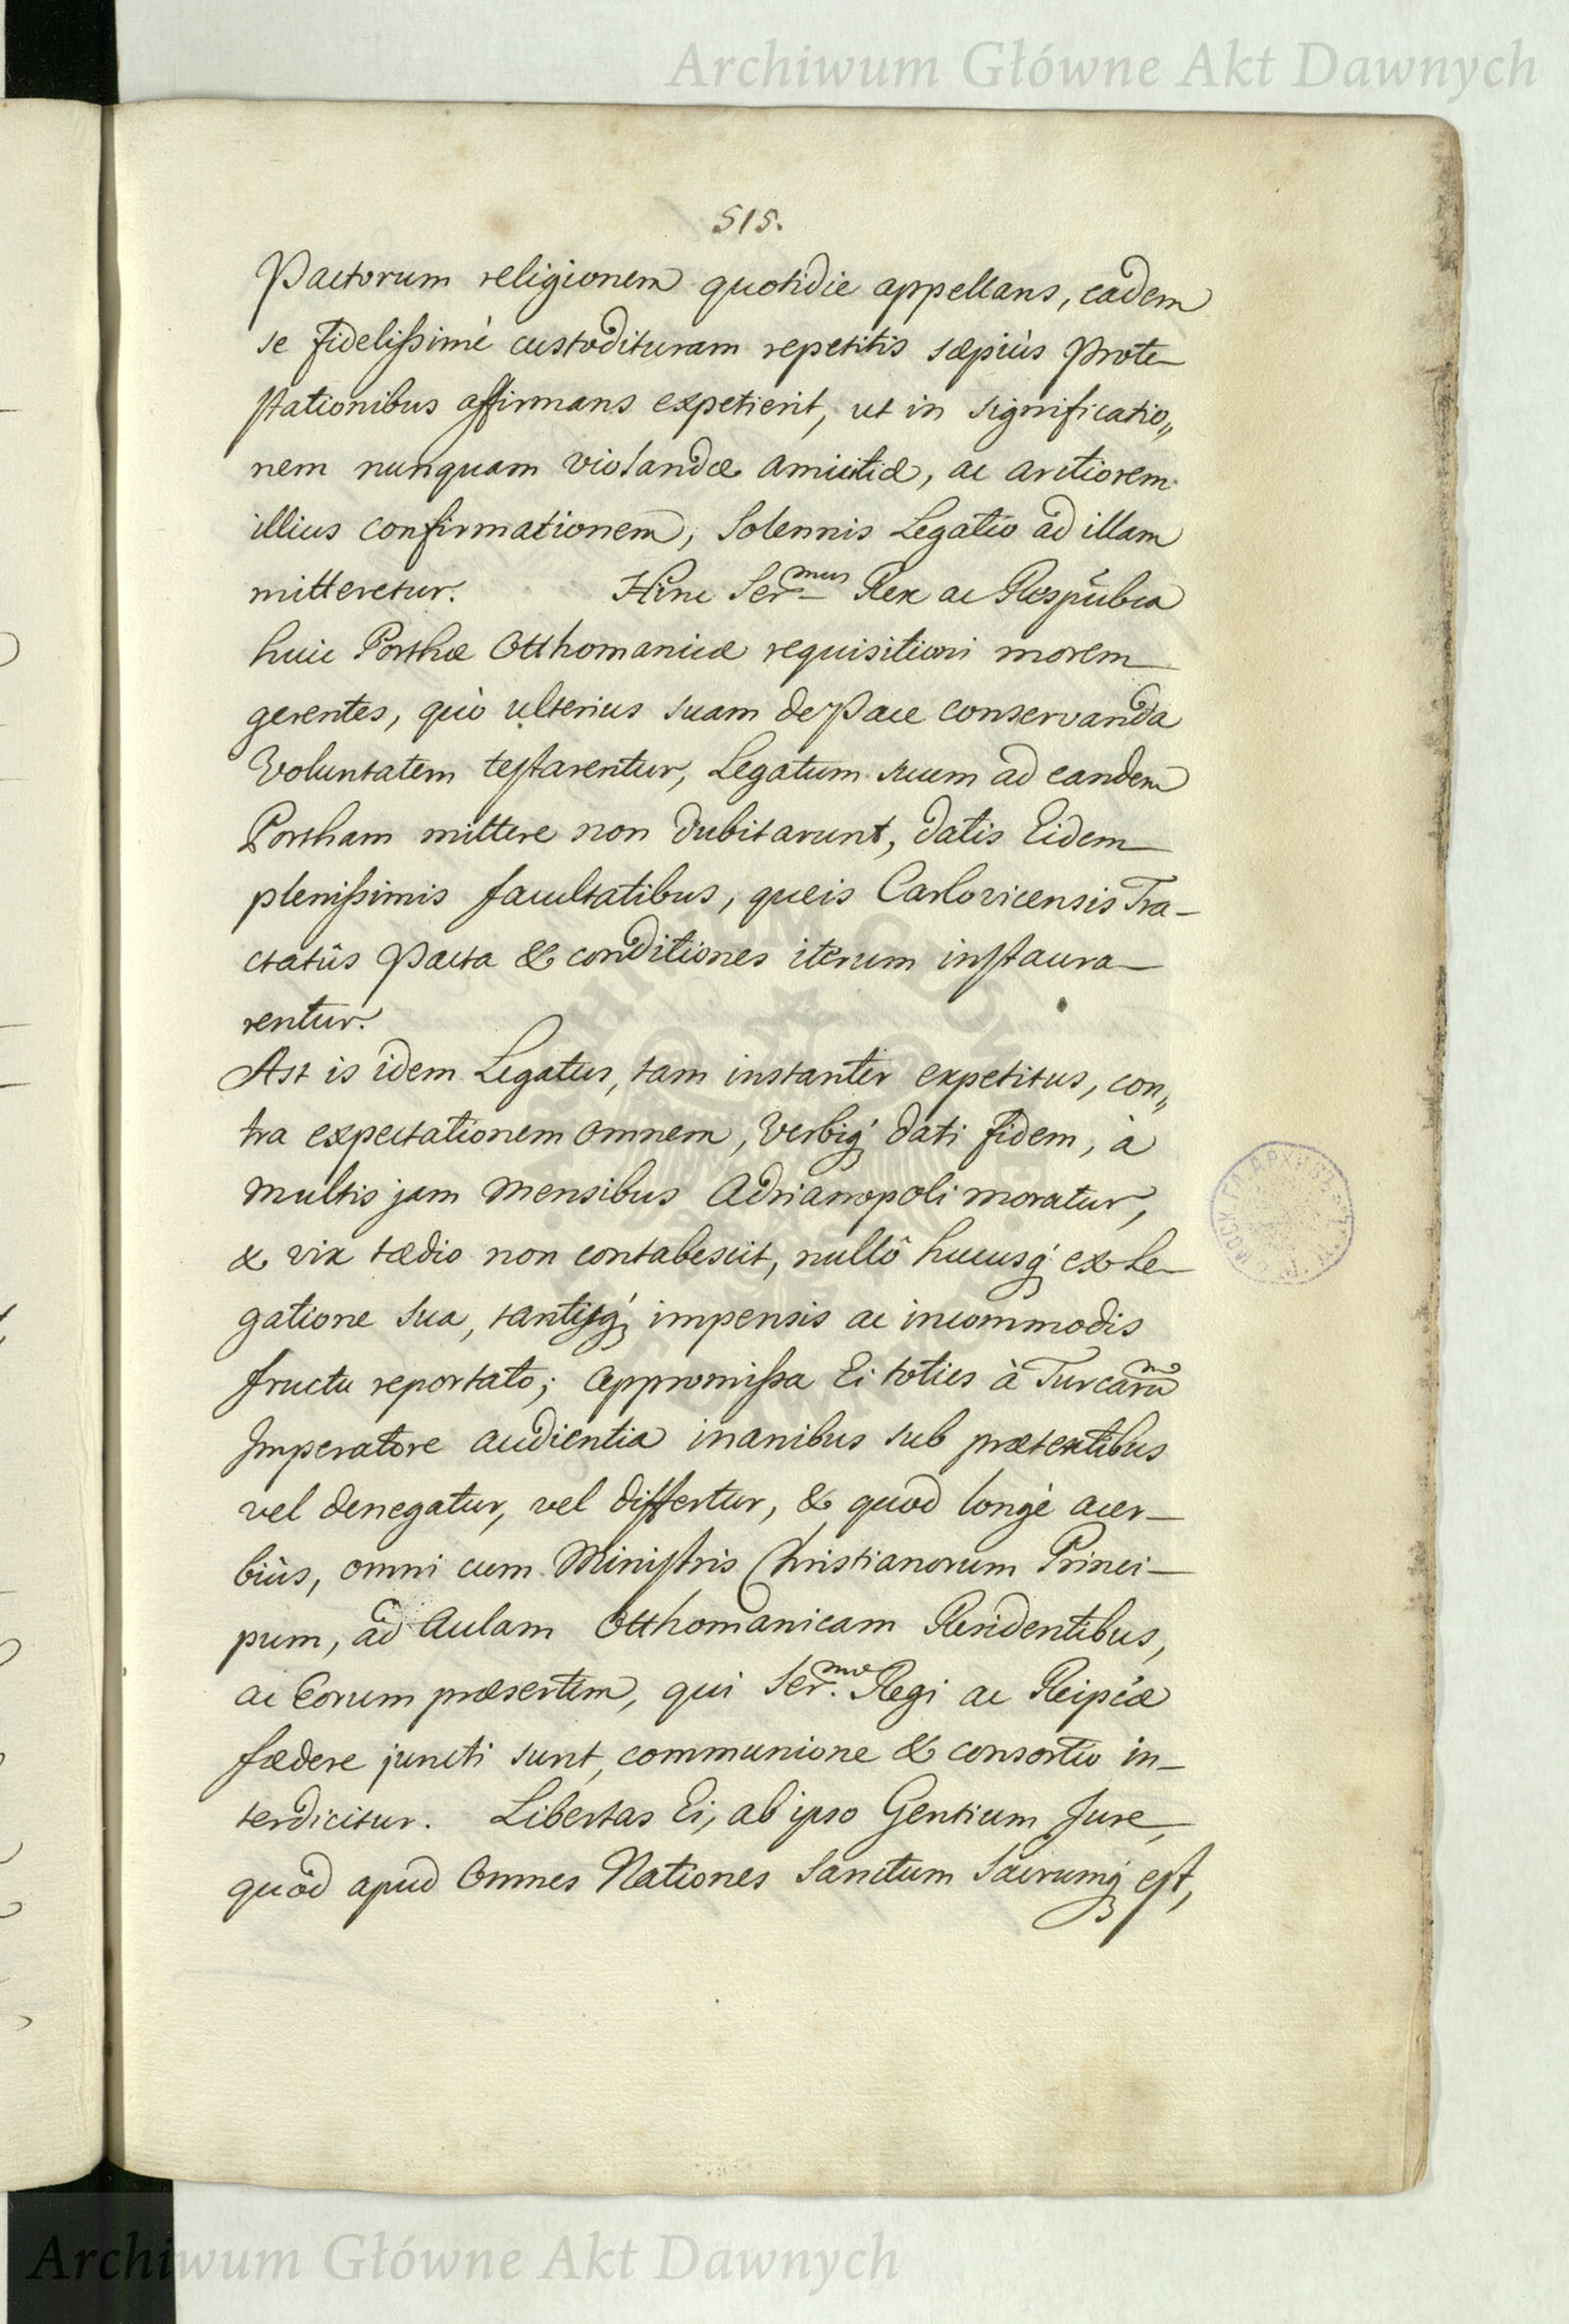 Archiwum Główne Akt Dawnych
515.
Pactorum religionem quotidie appellans, eadem
se fidelißimè custodituram repetitis sæpiùs prote-
stationibus affirmans expetierit, ut in significatio„
nem nunquam violandæ amicitiæ, ac arctiorem
illius confirmationem, Solennis Legatio ad illam
mitteretur. Hinc Ser.mus Rex ac Respublca
huic Porthæ Otthomanicæ requisitioni morem
gerentes, quò ulterius suam de Pace conservanda
Voluntatem testarentur, Legatum suum ad eandem
Portham mittere non dubitarunt, datis Eidem
plenißimis facultatibus, queis Carlovicensis Tra-
ctatûs Pacta & conditiones iterum instaura-
rentur.
Ast is idem Legatus, tam instanter expetitus, con„
tra expectationem omnem, Verbiq́ dati fidem, à
multis jam Mensibus Adrianopoli moratur,
& vix tædio non contabescit, nullô hucusq́ ex Le-
gatione sua, tantisq́ impensis ac incommodis
fructu reportato; appromißa Ei toties à Turcarū
Imperatore audientia inanibus sub prætextibus
vel denegatur, vel differtur, & quod longè acer-
biùs, omni cum Ministris Christianorum Princi-
pum, ad Aulam Otthomanicam Residentibus,
ac Eorum præsertim, qui Ser.mo Regi ac Reipcæ
fœdere juncti sunt, communione & consortio in-
terdicitur. Libertas Ei, ab ipso Gentium Jure,
quod apud Omnes Nationes Sanctum Sacrumq́ est,
Archiwum Główne Akt Dawnych